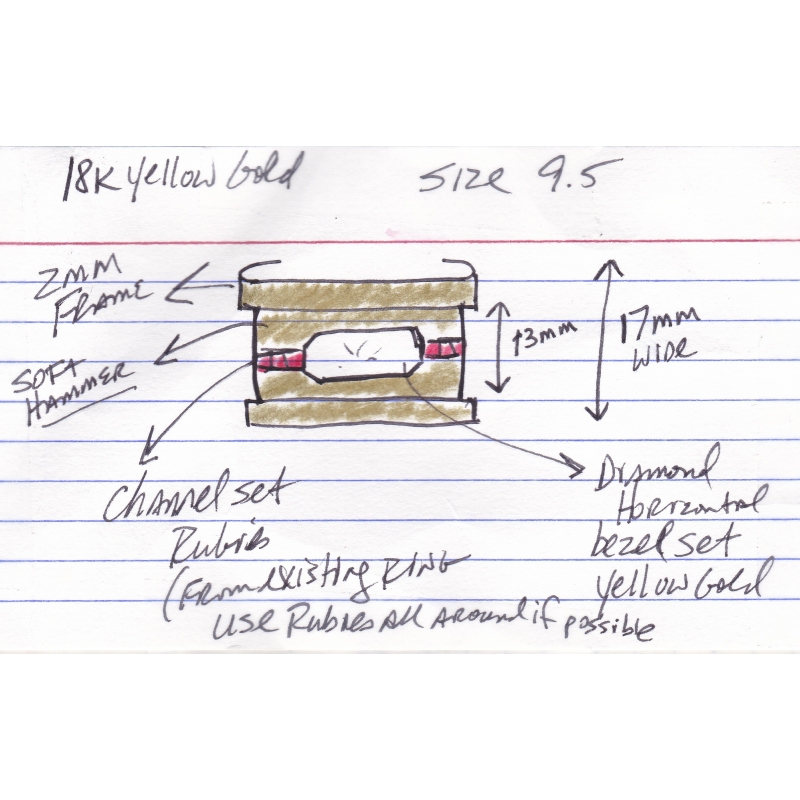 18K yellow Gold
SIZE 9.5
2MM
FRAME
SOFT
HAMMER
13mm
17mm
WIDE
Channel set
Rubies
(From existing RING
use Rubies All Around if possible
Diamond
Horizontal
bezel set
yellow Gold